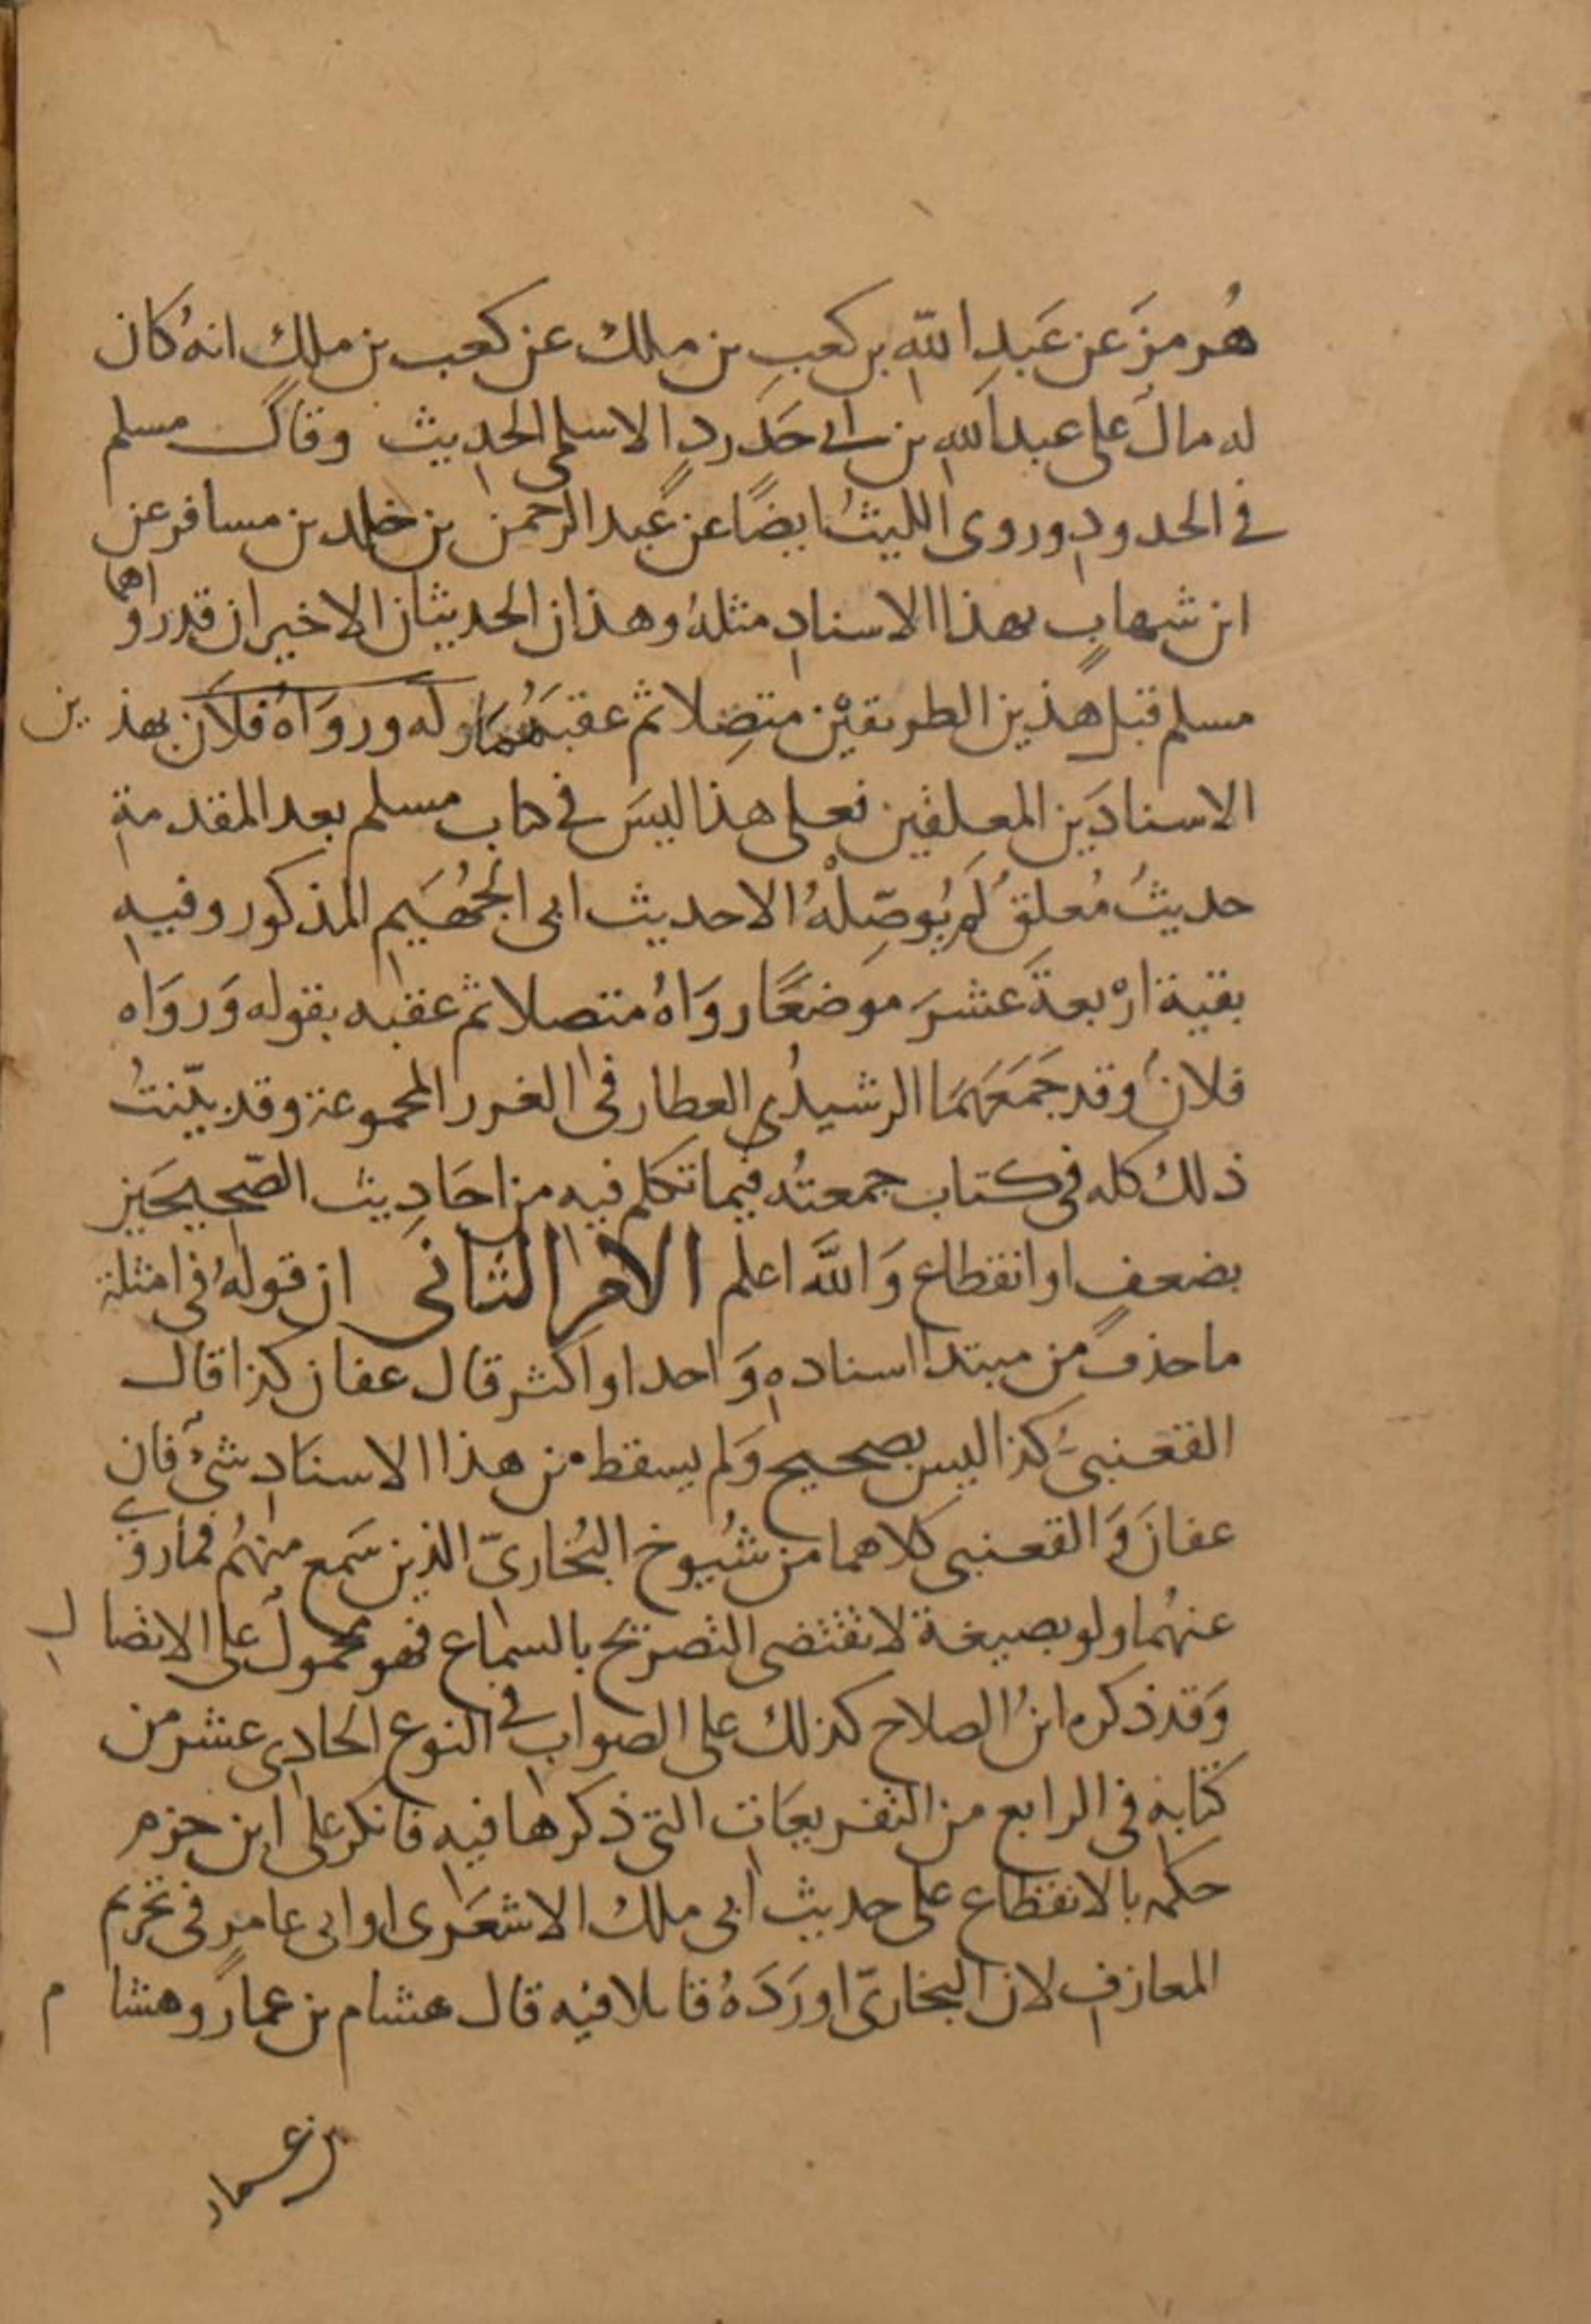 هُرمزَ عن عَبدِ اللّهِ بن كعبِ بن ملك عن كعب بن ملك انهُ كان
له مال على عبد الله بن ابى حَدَردٍ الاسلمى الحديث وقال مسلم
فى الحدود وروى الليثُ ايضًا عن عبد الرحمن بن خلد بن مسافر عن
ابن شهابٍ بهذا الاسناد مثلهُ وهذان الحديثان الاخيران قد رواهما
مسلم قبل هذين الطريقيْن متصِلا ثم عقبَهُما بقوله ورَوَاهُ فلان بهذين
الاسنادَين المعلقين فعلى هذا ليسَ فى كتاب مسلم بعد المقدمةِ
حديثُ مُعلقُ لم يُوصِّلْهُ الا حديث ابى الجُهَيم المذكور وفيه
بقية ارْبعةَ عشرَ موضعًا روَاهُ متصلا ثم عقبه بقوله وَروَاه
فلانُ وقد جمَعَهَا الرشيدُ العطار فى الغرر المجموعة وقد بيّنتُ
ذلك كله فى كتاب جمعتُه فيما تكلم فيه من احَادِيث الصّحِيحَين
بضعفٍ او انقطاع وَاللّهُ اعلم الامر الثانى ان قولهُ فى امثلة
ما حذف من مبتدا اسناده وَاحد او اكثر قال عفان كذا قال
القعنبىّ كذا ليس بصحيح وَلم يسقط من هذا الاسنادِ شىء فان
عفانَ وَالقعنبى كلاهما من شُيوخ البُخارىّ الذين سَمع منهُم فما روى
عنهُما ولو بصيغة لا تقتضى التصريح بالسماع فهو محمول على الاتصال
وَقد ذكره ابنُ الصلاح كذلك على الصواب فى النوع الحادى عشر من
كتابهِ فى الرابع من التفريعَات التى ذكرها فيه فانكر على ابن حزم
حكمه بالانقطاع على حديث ابى ملك الاشعَرى او ابى عامرٍ فى تحريم
المعازف لان البخارىّ اورَدَهُ قائلا فيه قال هشام بن عمار وهشام
بن عمار